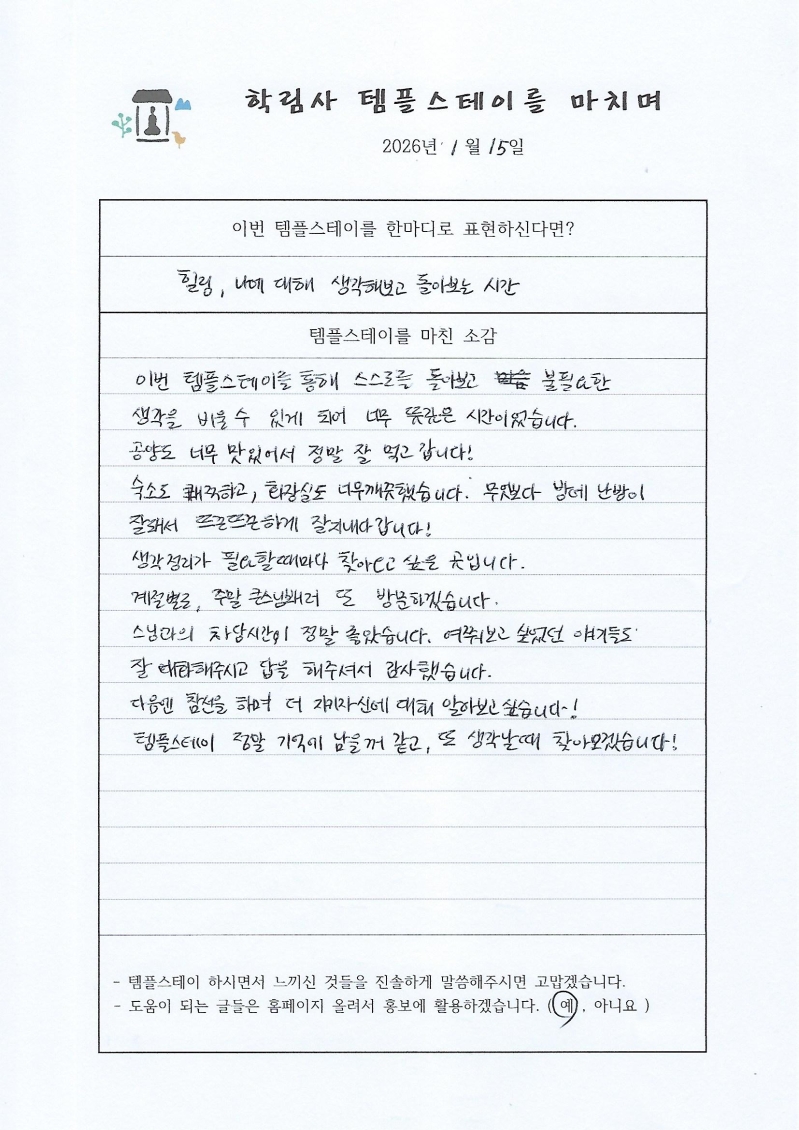 학림사 템플스테이를 마치며
2026년 1월 15일
이번 템플스테이를 한마디로 표현하신다면?
힐링, 나에 대해 생각해보고 돌아보는 시간
템플스테이를 마친 소감
이번 템플스테이를 통해 스스로를 돌아보고 불필요한
생각을 비울 수 있게 되어 너무 뜻깊은 시간이었습니다.
공양도 너무 맛있어서 정말 잘 먹고 갑니다!
숙소도 쾌적하고, 화장실도 너무깨끗했습니다. 무엇보다 밤에 난방이
잘돼서 뜨끈뜨끈하게 잘지내다갑니다!
생각정리가 필요할때마다 찾아오고 싶은 곳입니다.
계절별로, 주말 큰스님뵈러 또 방문하겠습니다.
스님과의 차담시간이 정말 좋았습니다. 여쭤보고 싶었던 얘기들도
잘 대화해주시고 답을 해주셔서 감사했습니다.
다음엔 참선을 하며 더 자기자신에 대해 알아보고싶습니다~!
템플스테이 정말 기억에 남을꺼 같고, 또 생각날때 찾아오겠습니다!
- 템플스테이 하시면서 느끼신 것들을 진솔하게 말씀해주시면 고맙겠습니다.
- 도움이 되는 글들은 홈페이지 올려서 홍보에 활용하겠습니다. ( 예 , 아니요 )